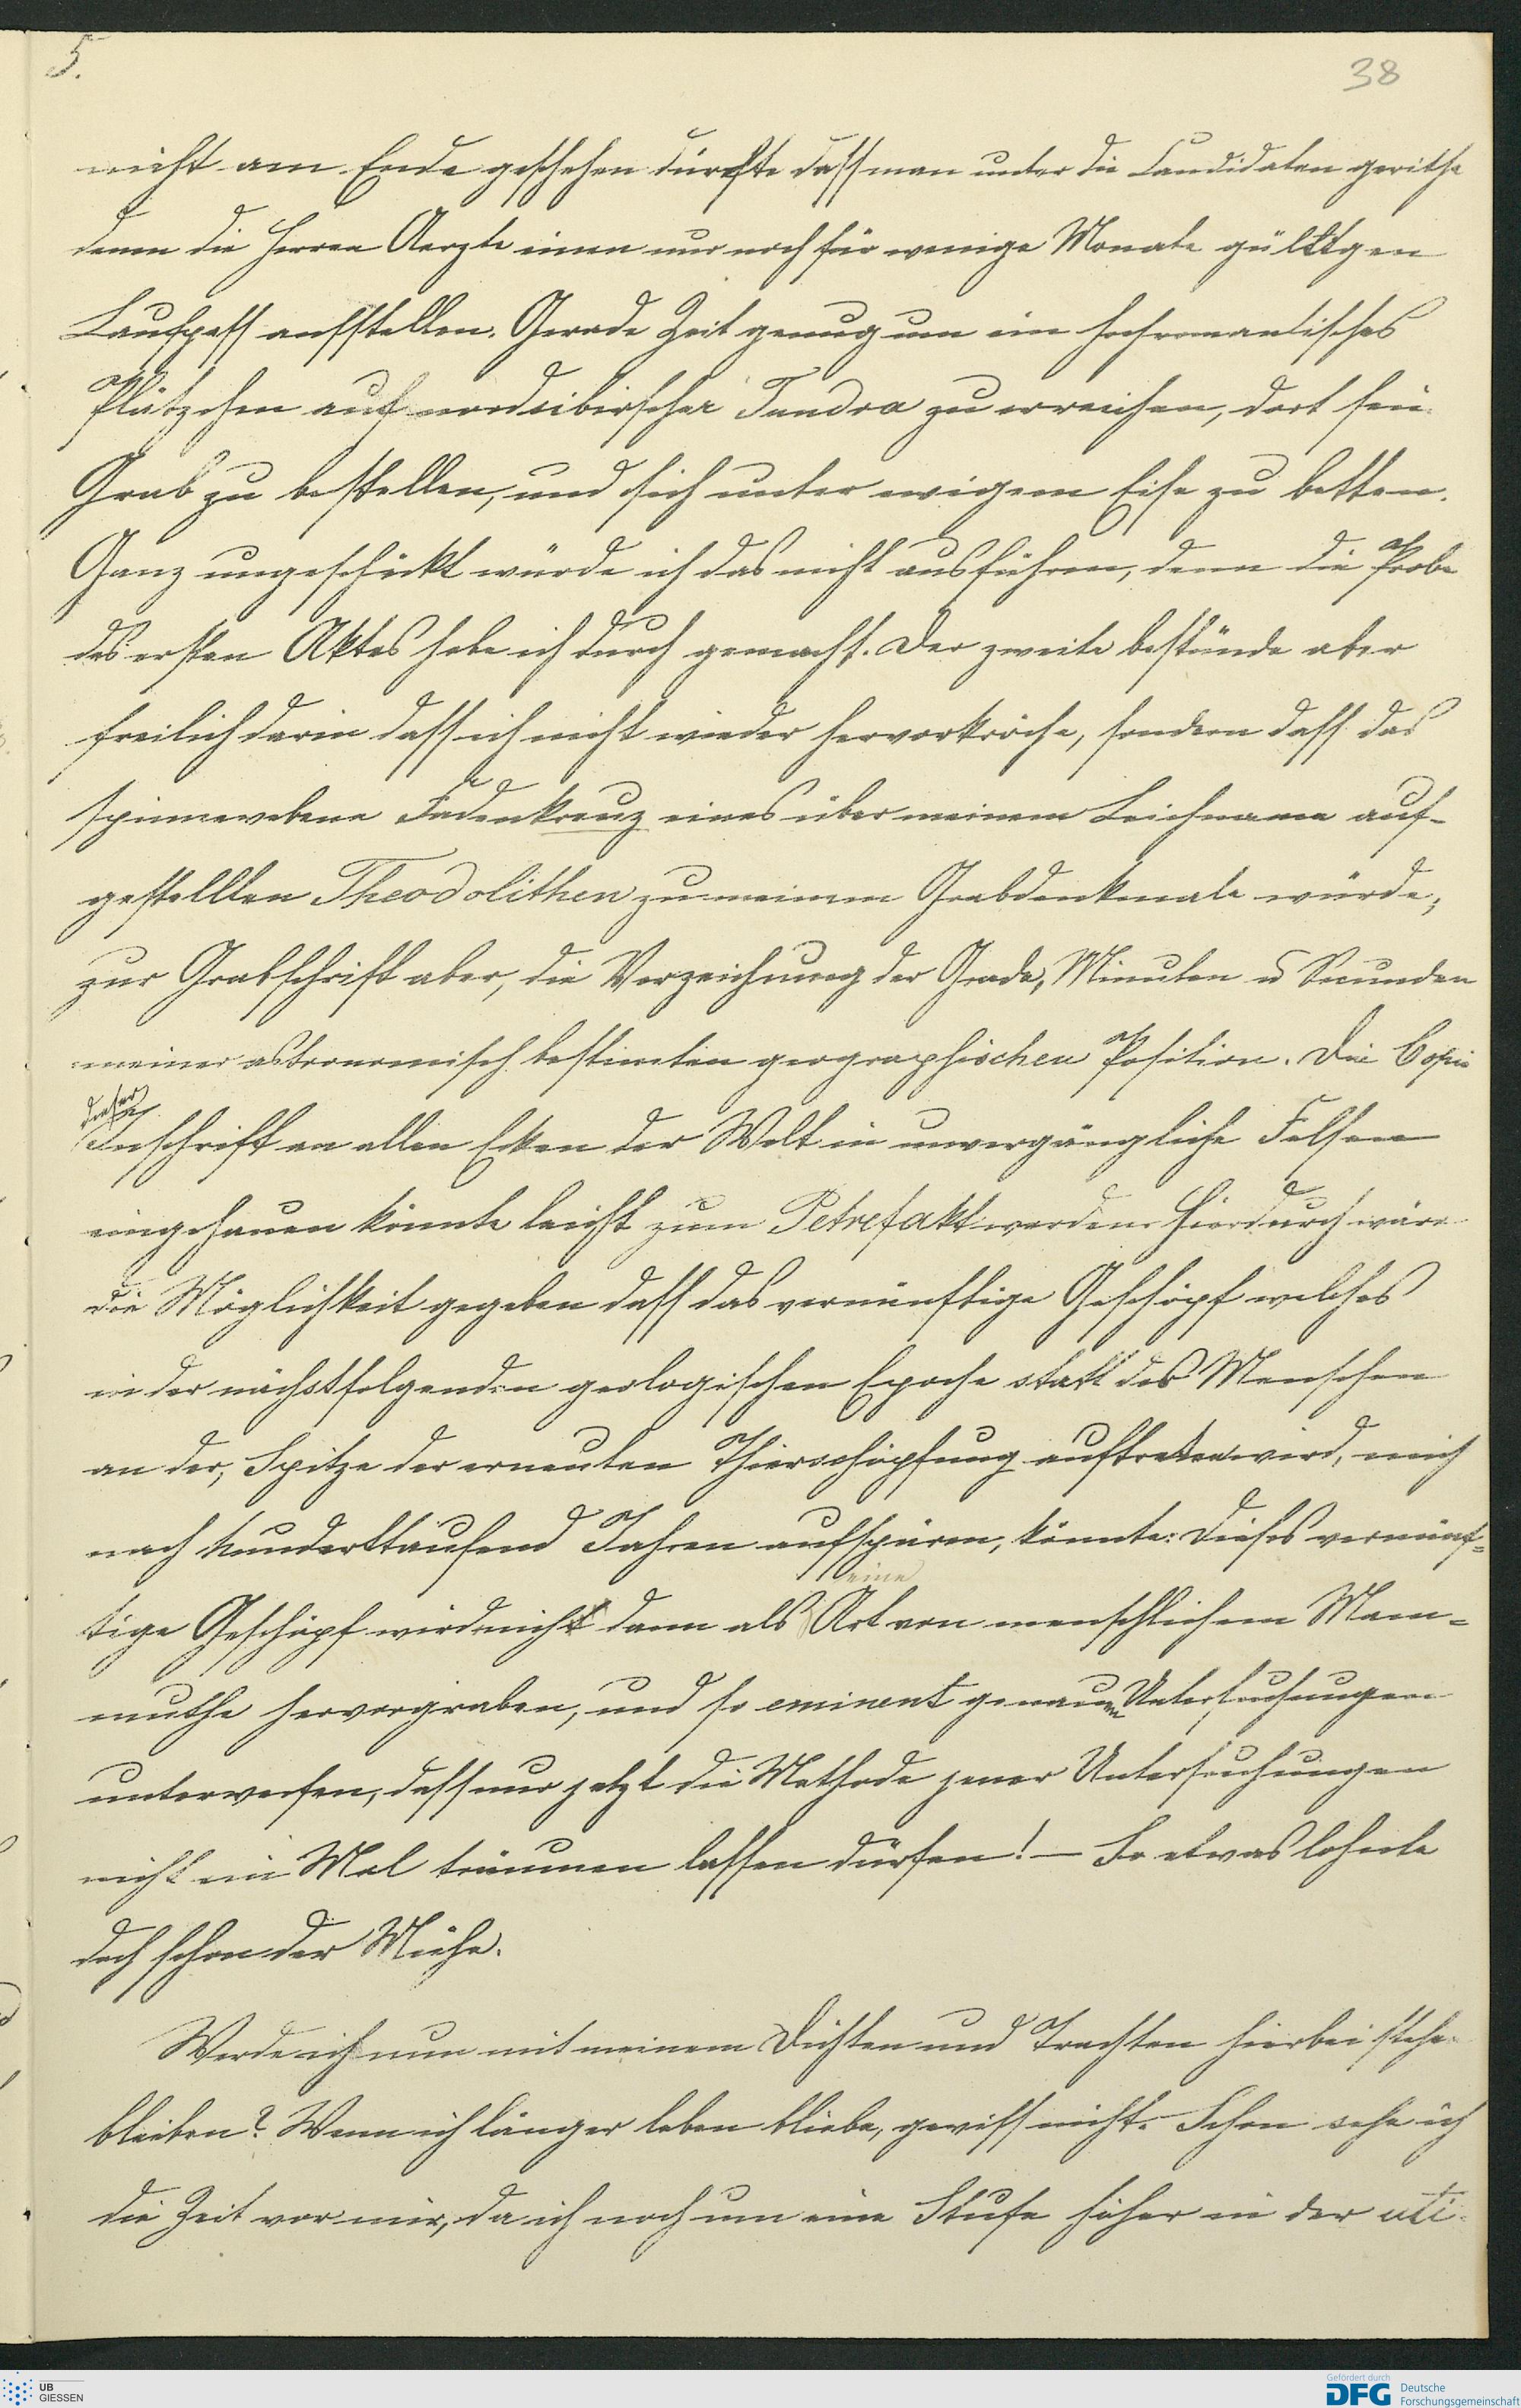 5.
38
nicht am Ende geschehen dürfte dass man unter die Candidaten geriethe
denen die Herren Aerzte einen nur noch für wenige Monate gültigen
Laufpass ausstellen. Gerade Zeit genug um ein hochromantisches
Plätzchen auf nordsibirscher Tundra zu erreichen, dort sein
Grab zu bestellen, und sich unter ewigem Eise zu betten.
Ganz ungeschickt würde ich das nicht ausführen, denn die Probe
des ersten Aktes habe ich durch gemacht. Der zweite bestünde aber
freilich darin dass ich nicht wieder hervorkröche, sondern dass das
spinnewebene Fadenkreuz eines über meinem Leichname auf-
gestellten Theodolithen zu meinem Grabdenkmale würde;
zur Grabschrift aber, die Verzeichnung der Grade, Minuten u Secunden
meiner astronomisch bestimten geographischen Position. Die Copie
dieser
Inschrift an allen Ecken der Welt in unvergängliche Felsen
eingehauen könnte leicht zum Petrefakt werden. Hierdurch wäre
die Möglichkeit gegeben dass das vernünftige Geschöpf welches
in der nächstfolgenden geologischen Epoche statt des Menschen
an der, Spitze der erneuten Thierschöpfung auftreten wird, mich
nach hunderttausend Jahren aufspüren, könnte: Dieses vernünf-
eine
tige Geschöpf wird mich dann als Art von menschlichem Mam-
muthe hervorgraben, und so eminent genauen Untersuchungen
unterwerfen, dass wir jetzt die Methode jener Untersuchungen
nicht ein Mal träumen lassen dürfen! – So etwas lohnte
doch schon der Mühe.
Werde ich nun mit meinem Dichten und Trachten hierbei stehe
bleiben? Wenn ich länger leben bliebe, gewiss nicht. Schon sehe ich
die Zeit vor mir, da ich noch um eine Stufe höher in der uti-
UB
GIESSEN
Gefördert durch
DFG Deutsche
Forschungsgemeinschaft